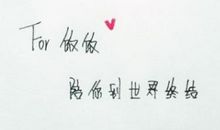 For 饭饭
陪你到世界终结